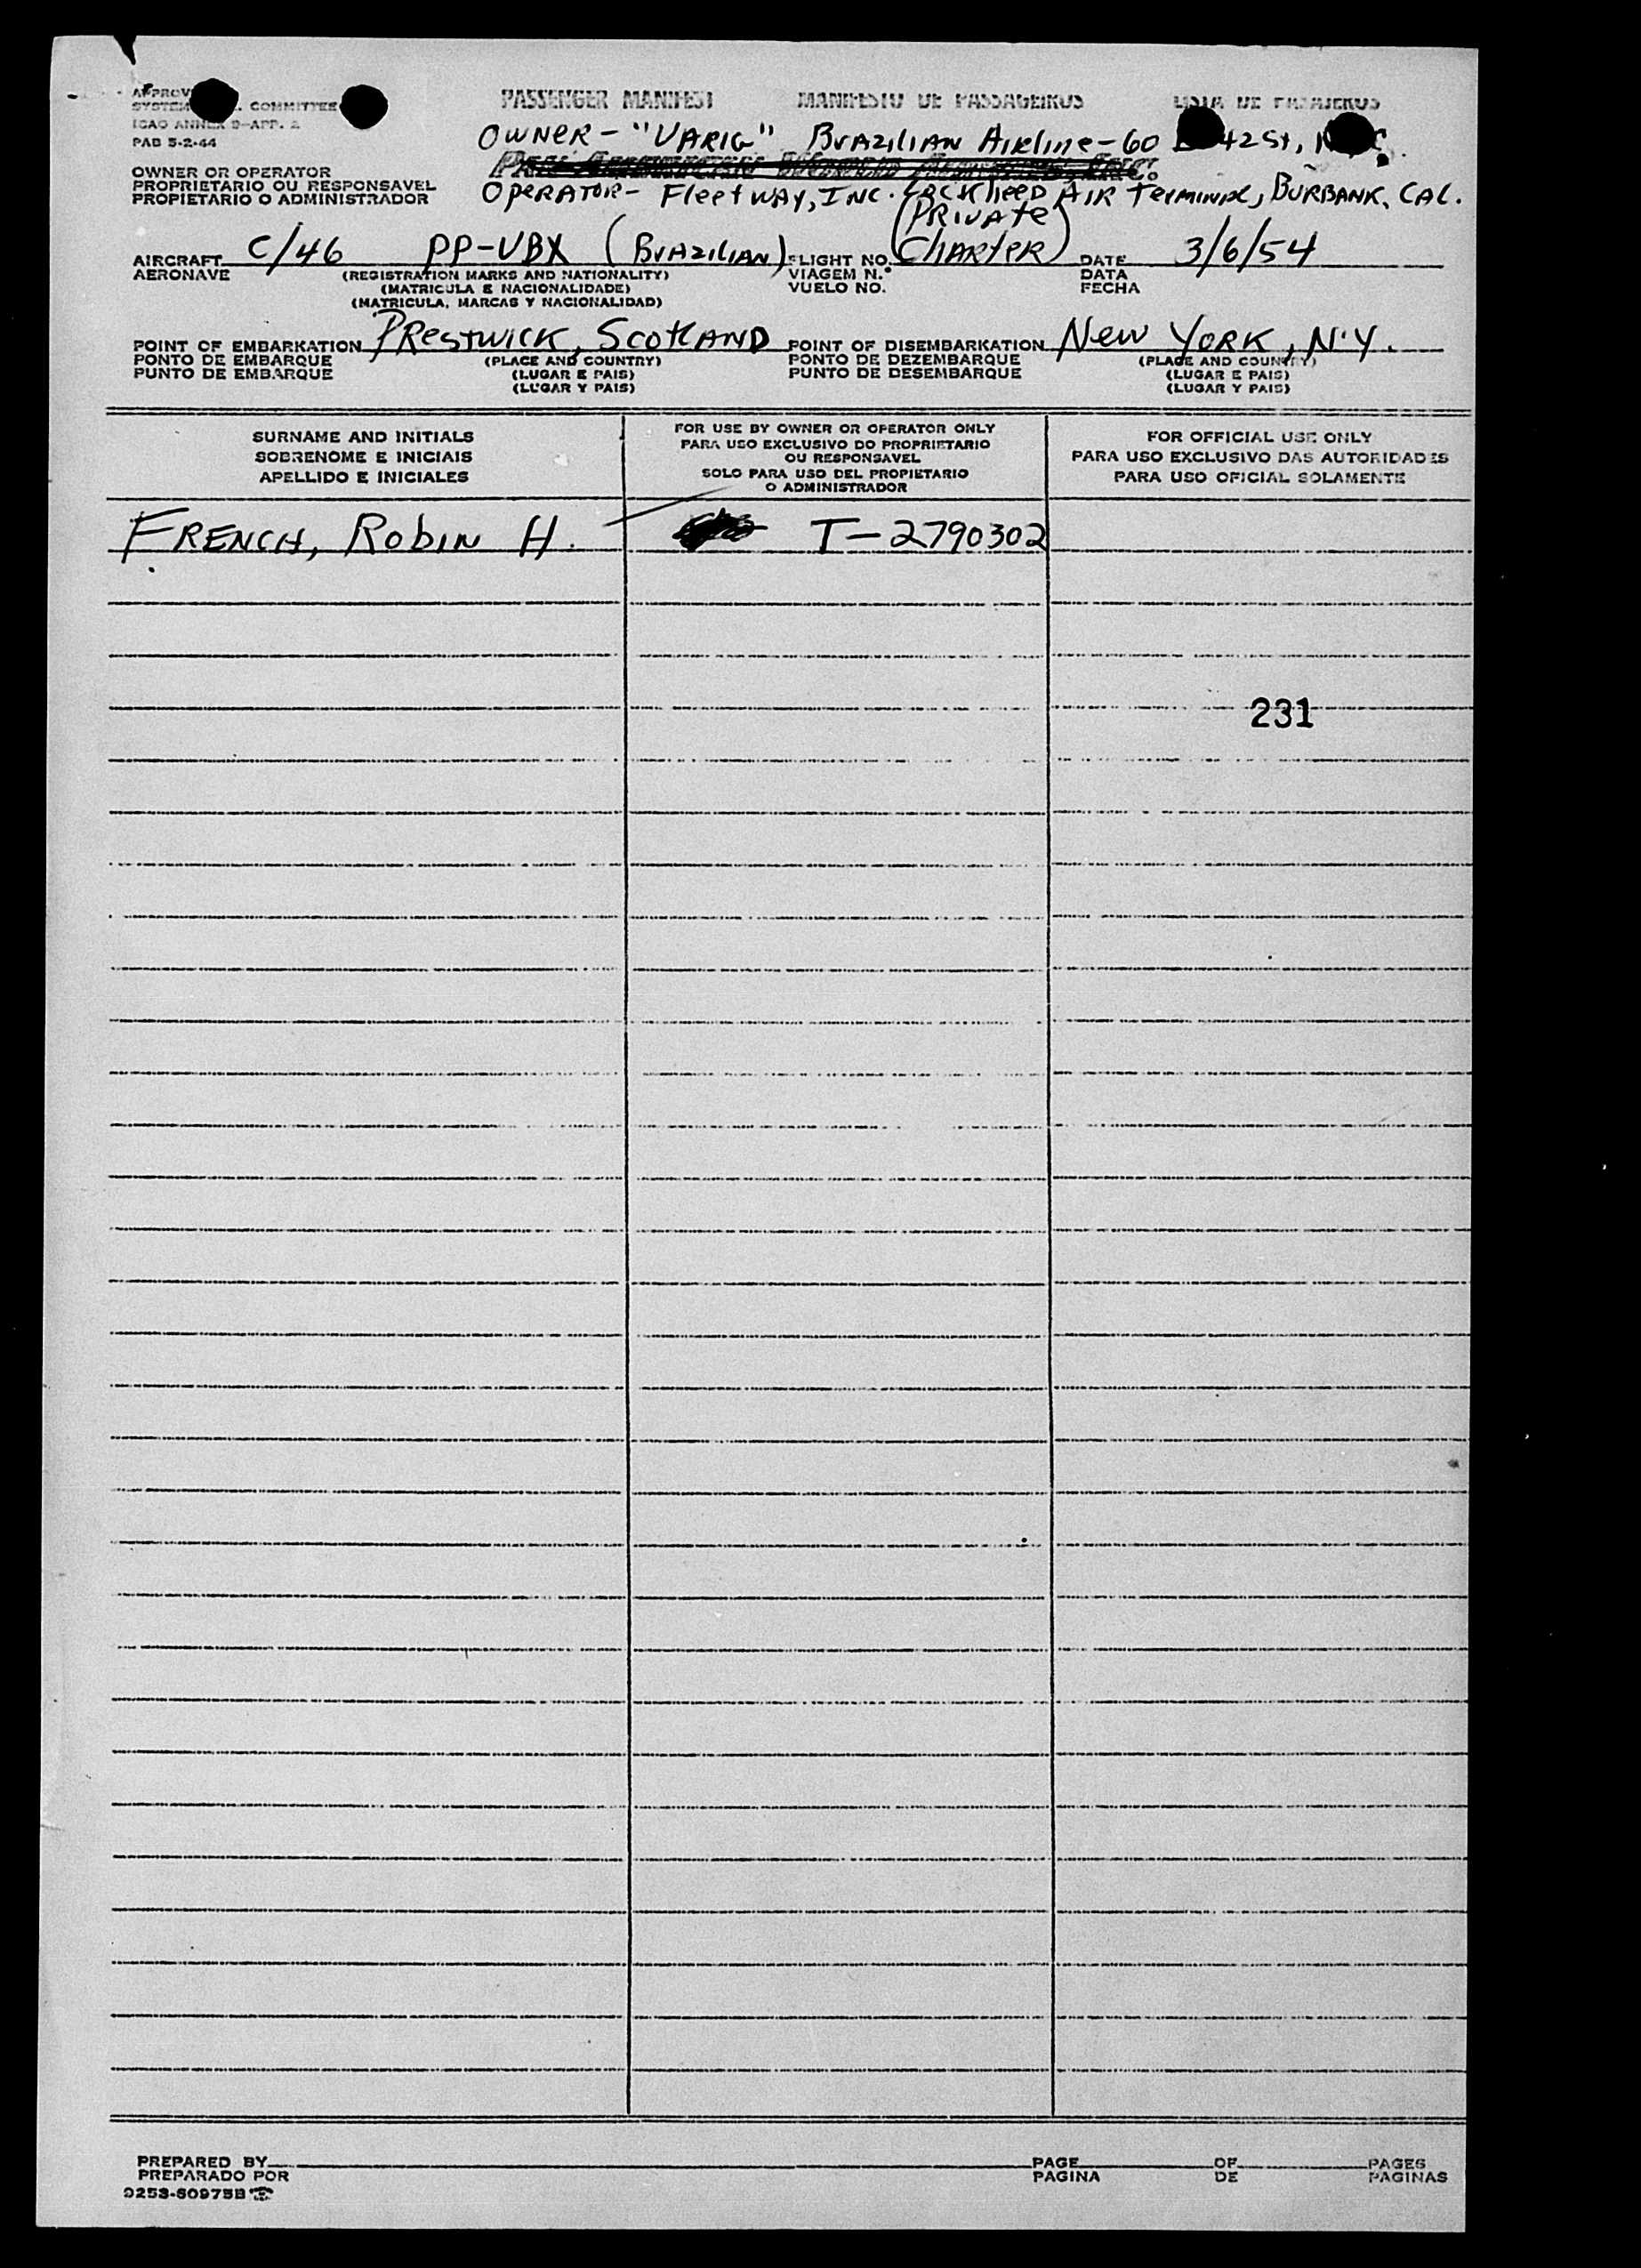 PASSENGER MANIFEST MANIFESTO DE PASSAGEIROS LISTA DE PASAJEROS
COMMITTEE
ICAO ANNEX 9-APP. 2
PAB 5-2-44
OWNER - "VARIG" BrAZILIAN AIRLINE - 60 42 St,
OWNER OR OPERATOR
PROPRIETARIO OU RESPONSAVEL
PROPIETARIO O ADMINISTRADOR
OPERATOR - Fleetway, INC. LOCKHEED AIR TERMINAL, BURBANK, CAL.
AIRCRAFT C/46 PP-VBX (BrAZILIAN) FLIGHT NO. (PRIVATE CHARTER) DATE 3/6/54
AERONAVE (REGISTRATION MARKS AND NATIONALITY) VIAGEM N.° DATA
(MATRICULA E NACIONALIDADE) VUELO NO. FECHA
(MATRICULA, MARCAS Y NACIONALIDAD)
POINT OF EMBARKATION PRESTWICK, SCOTLAND POINT OF DISEMBARKATION NEW YORK, N.Y.
PONTO DE EMBARQUE (PLACE AND COUNTRY) PONTO DE DEZEMBARQUE (PLACE AND COUNTRY)
PUNTO DE EMBARQUE (LUGAR E PAIS) PUNTO DE DESEMBARQUE (LUGAR E PAIS)
(LUGAR Y PAIS) (LUGAR Y PAIS)
SURNAME AND INITIALS
SOBRENOME E INICIAIS
APELLIDO E INICIALES
FOR USE BY OWNER OR OPERATOR ONLY
PARA USO EXCLUSIVO DO PROPRIETARIO
OU RESPONSAVEL
SOLO PARA USO DEL PROPIETARIO
O ADMINISTRADOR
FOR OFFICIAL USE ONLY
PARA USO EXCLUSIVO DAS AUTORIDADES
PARA USO OFICIAL SOLAMENTE
FRENCH, ROBIN H. T-2790302
231
PREPARED BY PAGE OF PAGES
PREPARADO POR PAGINA DE PAGINAS
0253-60975B